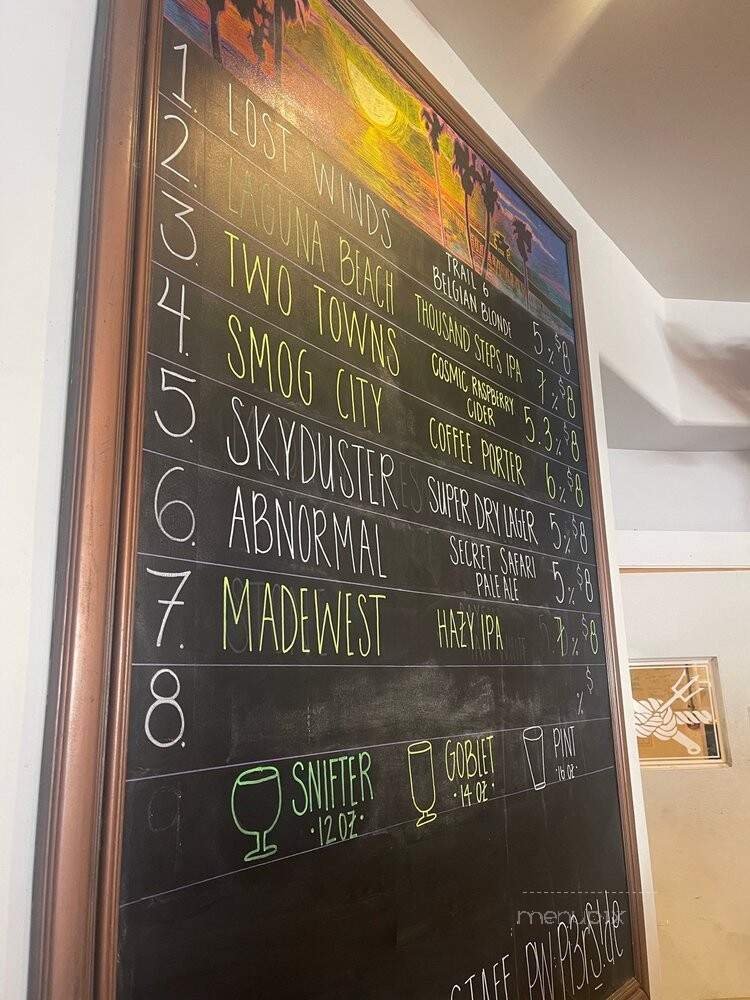 1. LOST WINDS TRAIL 6 BELGIAN BLONDE 5% $8
2. LAGUNA BEACH THOUSAND STEPS IPA 7% $8
3. TWO TOWNS COSMIC RASPBERRY CIDER 5.3% $8
4. SMOG CITY COFFEE PORTER 6% $8
5. SKYDUSTER SUPER DRY LAGER 5% $8
6. ABNORMAL SECRET SAFARI PALE ALE 5% $8
7. MADEWEST HAZY IPA 7% $8
8. % $
9
SNIFTER ·12 OZ·
GOBLET ·14 OZ·
PINT ·16 OZ·
STAFF PW: P!3rS!de
menupix